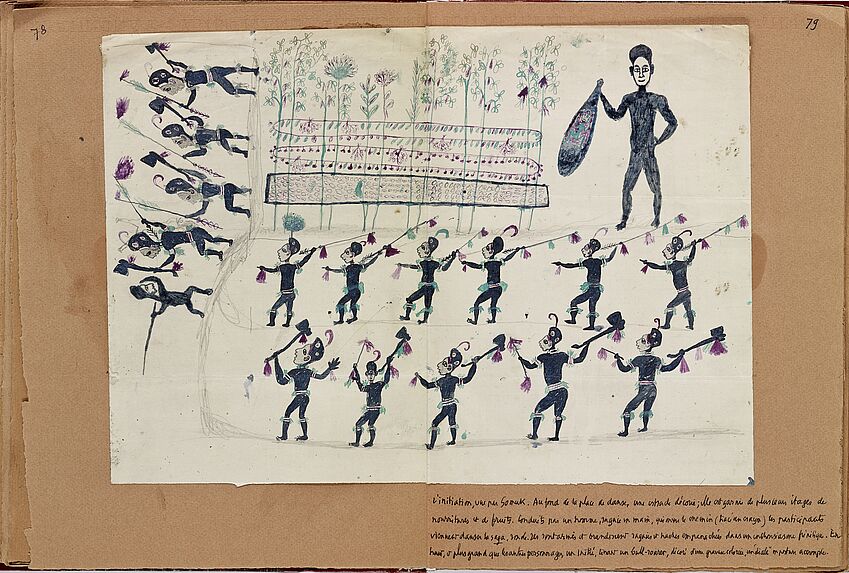 78
79
L'initiation, vue par Somuk. Au fond de la place de danse, une estrade décorée; elle est garnie de plusieurs étages de
nourritures et de fruits. Conduits par un homme, sagaie en main, qui ouvre le chemin (tracé au crayon) les participants
viennent danser le ronde. Ils sont armés et brandissent sagaies et haches emplumées dans un enthousiasme frénétique. En
haut, et plus grand que les autres personnages, un Initié, tenant un bull-roarer, décoré d'une gravure colorée, un diable